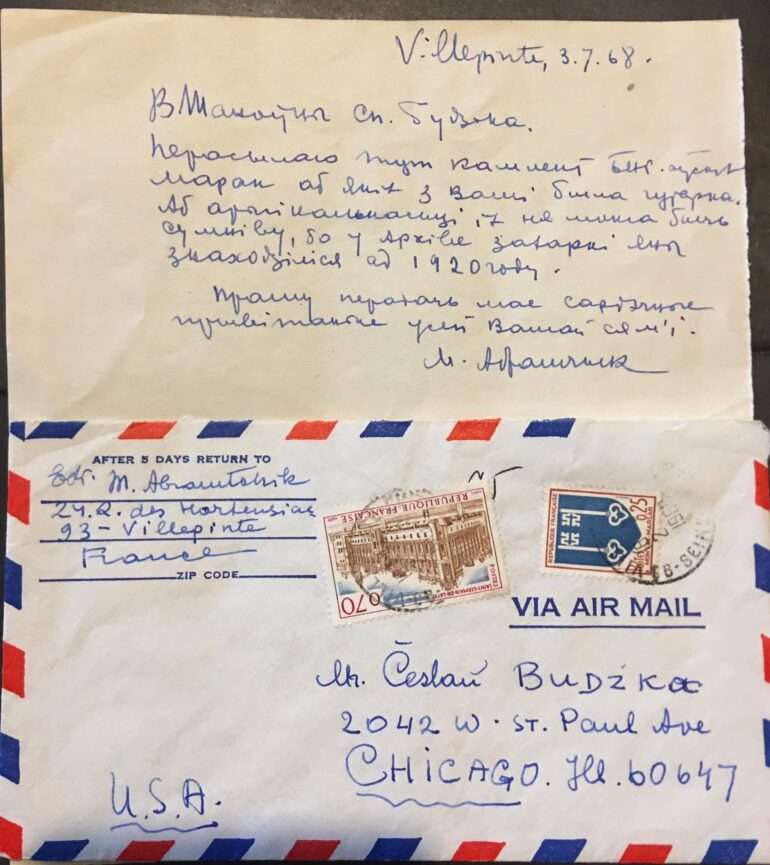 Villepinte, 3.7.68.
В Шаноўны Сп. Будзька.
Перасылаю тут камплект БНР.
марак аб якіх з Вамі была гутарка.
Аб арыгінальнасці, іх ня можа быць
сумніву, бо ў Архіве яны
знаходзіліся ад 1920 году.
Прашу перадачь мае сардэчнае
прывітаньне ўсей Вашай сям'і.
М. Абрамчык
AFTER 5 DAYS RETURN TO
M. Abramtchik
24.R. des Hortensias
93-Villepinte
France
ZIP CODE
N5
REPUBLIQUE FRANÇAISE
POSTES
SAINT-GERMAIN-EN-LAYE
0,70
REPUBLIQUE FRANÇAISE
0,25
VIA AIR MAIL
Mr. Česlaŭ BUDŹKA
2042 W. ST. Paul Ave
CHICAGO. Ill. 60647
U.S.A.